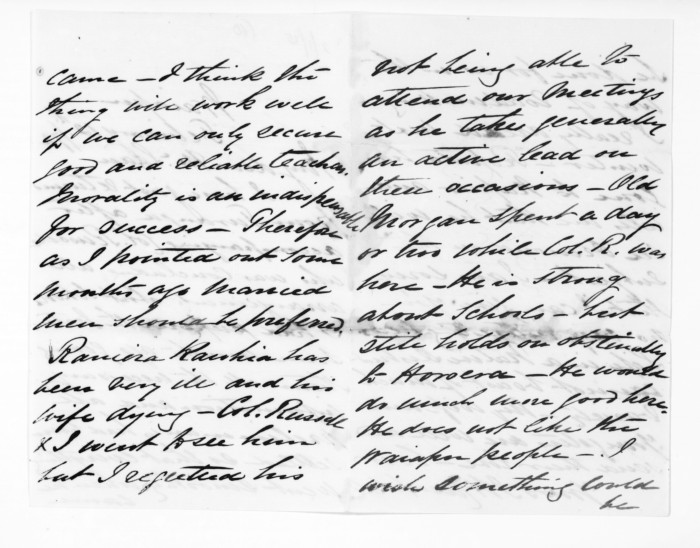 came – I think the
thing will work well
if we can only secure
good and reliable teachers.
Morality is an indispensable
for success – Therefore
as I pointed out some
months ago married
men should be preferred.
Raniera Kawhia has
been very ill and his
wife dying – Col. Russell
& I went to see him
but I regretted his
not being able to
attend our Meetings
as he takes generally
an active lead on
these occasions – Old
Morgan spent a day
or two while Col. R. was
here – He is strong
about Schools – but
still holds on obstinately
to Horoera – He would
do much more good here.
He does not like the
Waiapu people – I
wish something could
be